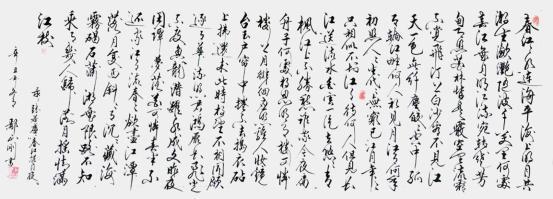 春江潮水连海平海上明月共
潮生滟滟随波千万里何处
春江无月明江流宛转绕芳
甸月照花林皆似霰空里流霜
不觉飞汀上白沙看不见江
天一色无纤尘皎皎空中孤
月轮江畔何人初见月江月何年
初照人人生代代无穷已江月年年
只相似不知江月待何人但见长
江送流水白云一片去悠悠青
枫江上不胜愁谁家今夜扁
舟子何处相思明月楼可怜
楼上月徘徊应照离人妆镜
台玉户帘中卷不去捣衣砧
上拂还来此时相望不相闻愿
逐月华流照君鸿雁长飞光
不度鱼龙潜跃水成文昨夜
闲潭梦落花可怜春半不
还家江水流春去欲尽江潭
落月复西斜斜月沉沉藏海
雾碣石潇湘无限路不知
乘月几人归落月摇情满
江树
录张若虚春江花月夜
辛丑年 刚书